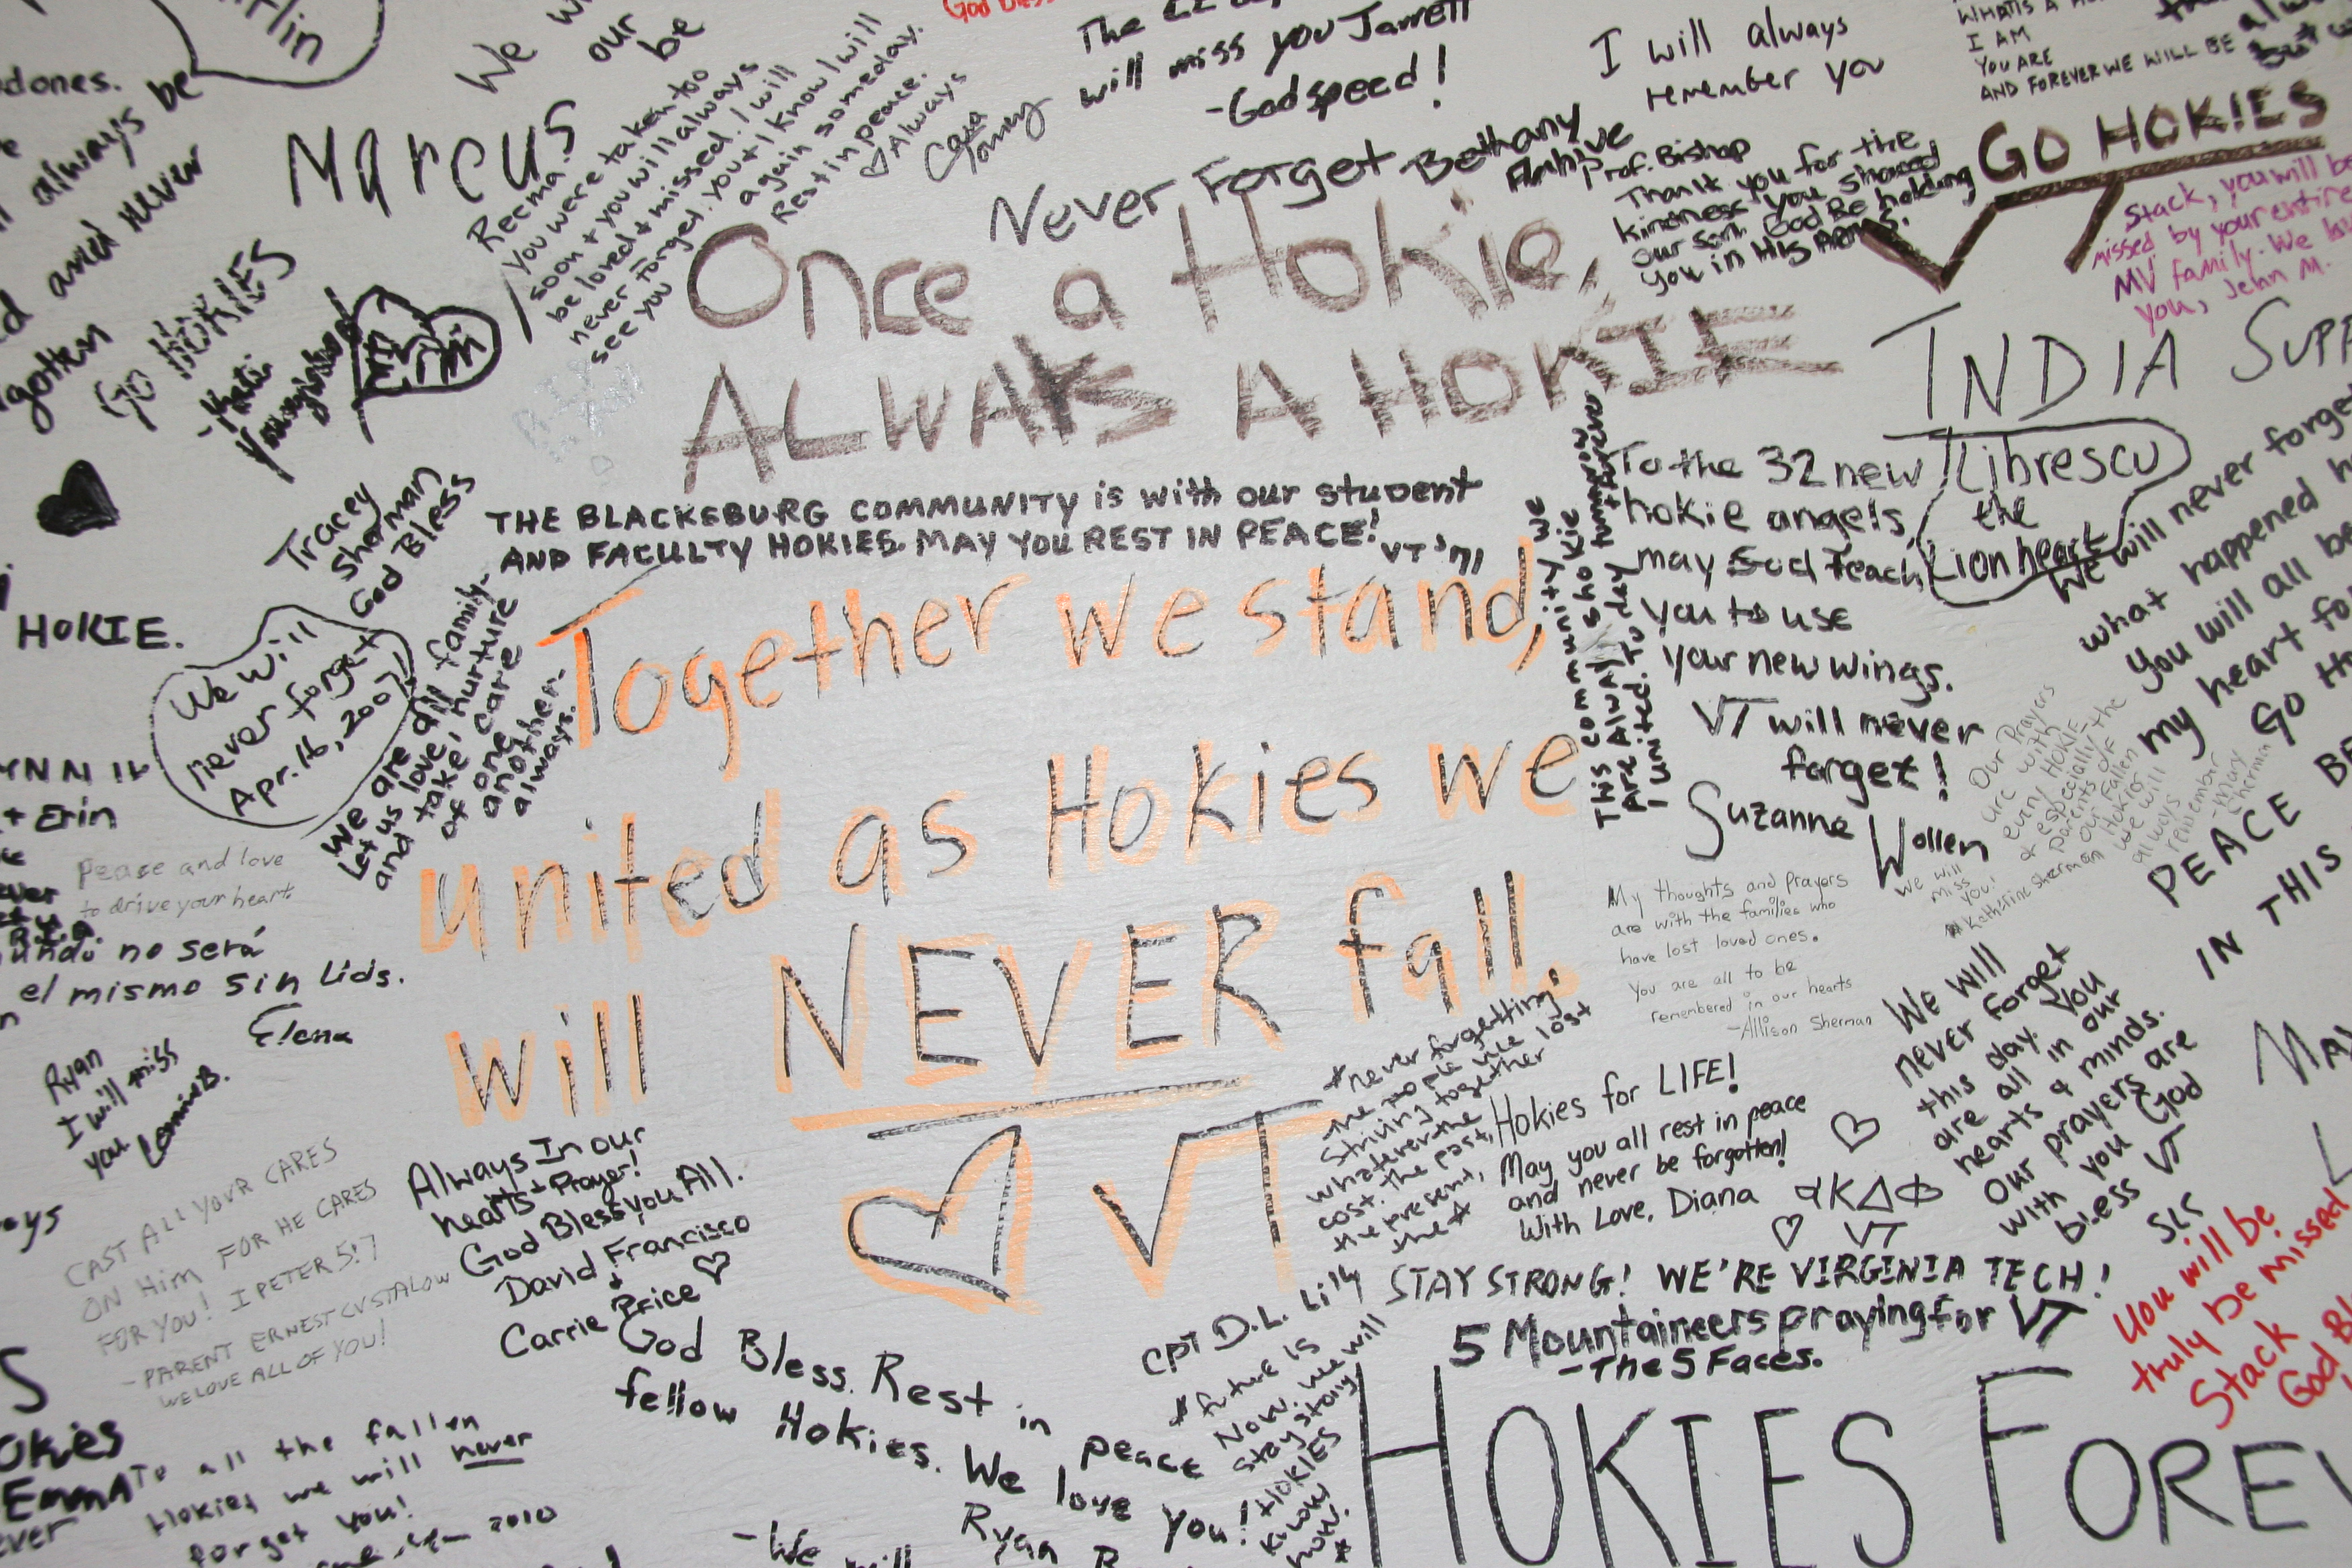 God Bless
The
will miss you Jarrett
-Godspeed!
I will always
remember you
I AM
YOU ARE
AND FOREVER WE WILL BE
GO HOKIES
VT
dones.
always be
and never
gotten
We
our
be
Marcus
Reema.
You were taken too
soon + you will always
be loved + missed. I will
never forget you + I know I will
see you again someday.
Rest in peace.
♡ Always
Never Forget Bethany
Prof. Bishop
Thank you for the
kindness you showed
our son. God Be holding
you in His Arms.
Stack, you will be
missed by your entire
MV family. We
You, John M.
GO HOKIES
Once a Hokie,
ALWAYS A HOKIE
INDIA SUPP
Tracey
Sherman
God Bless
THE BLACKSBURG COMMUNITY is with our student
AND FACULTY HOKIES. MAY YOU REST IN PEACE!
VT '71
To the 32 new
hokie angels,
may God teach
you to use
your new wings.
VT will never
forget!
Suzanne Wollen
Librescu
the
Lionheart
We will never forget
what happened
you will all be
my heart
Go
This community we
Are Always
United. Today
HOKIE.
We will
never forget
Apr. 16, 2007
We are all family-
Let us love, nurture
and take care
of one
another-
always.
Together we stand,
united as Hokies we
will NEVER fall.
♡ VT
+ Erin
Peace and love
to drive your heart.
no será
el mismo sin Uds.
Elena
Our Prayers
are with
every HOKIE
& especially the
parents of
our fallen
Hokies
We will
always
remember
-Mary
Sherman
We will
miss
you!
Katherine Sherman
My thoughts and prayers
are with the families who
have lost loved ones.
You are all to be
remembered in our hearts
-Allison Sherman
PEACE BE
IN THIS
Ryan
I will miss
you
CAST ALL YOUR CARES
ON HIM FOR HE CARES
FOR YOU! I PETER 5:7
- PARENT ERNEST CVSTALOW
WE LOVE ALL OF YOU!
Always In our
hearts + Prayer!
God Bless you All.
David Francisco
+
Carrie Price ♡
*never forgetting
the people we lost
striving together
whatever the
cost. The past,
the present,
the*
Hokies for LIFE!
May you all rest in peace
and never be forgotten!
With Love, Diana
We will
never forget
this day. You
are all in our
hearts & minds.
Our prayers are
with you God
bless VT
SLS
VT
CPT D.L. Lilly
STAY STRONG! WE'RE VIRGINIA TECH!
5 Mountaineers praying for VT
-The 5 Faces.
You will be
truly be missed
Stack
God
*future is
Now. we will
stay strong
HOKIES
know
how!*
God Bless. Rest in peace
fellow Hokies. We love you!
Ryan
HOKIES FOREV
Emma
To all the fallen
Hokies we will never
forget you!
2010
-We
will